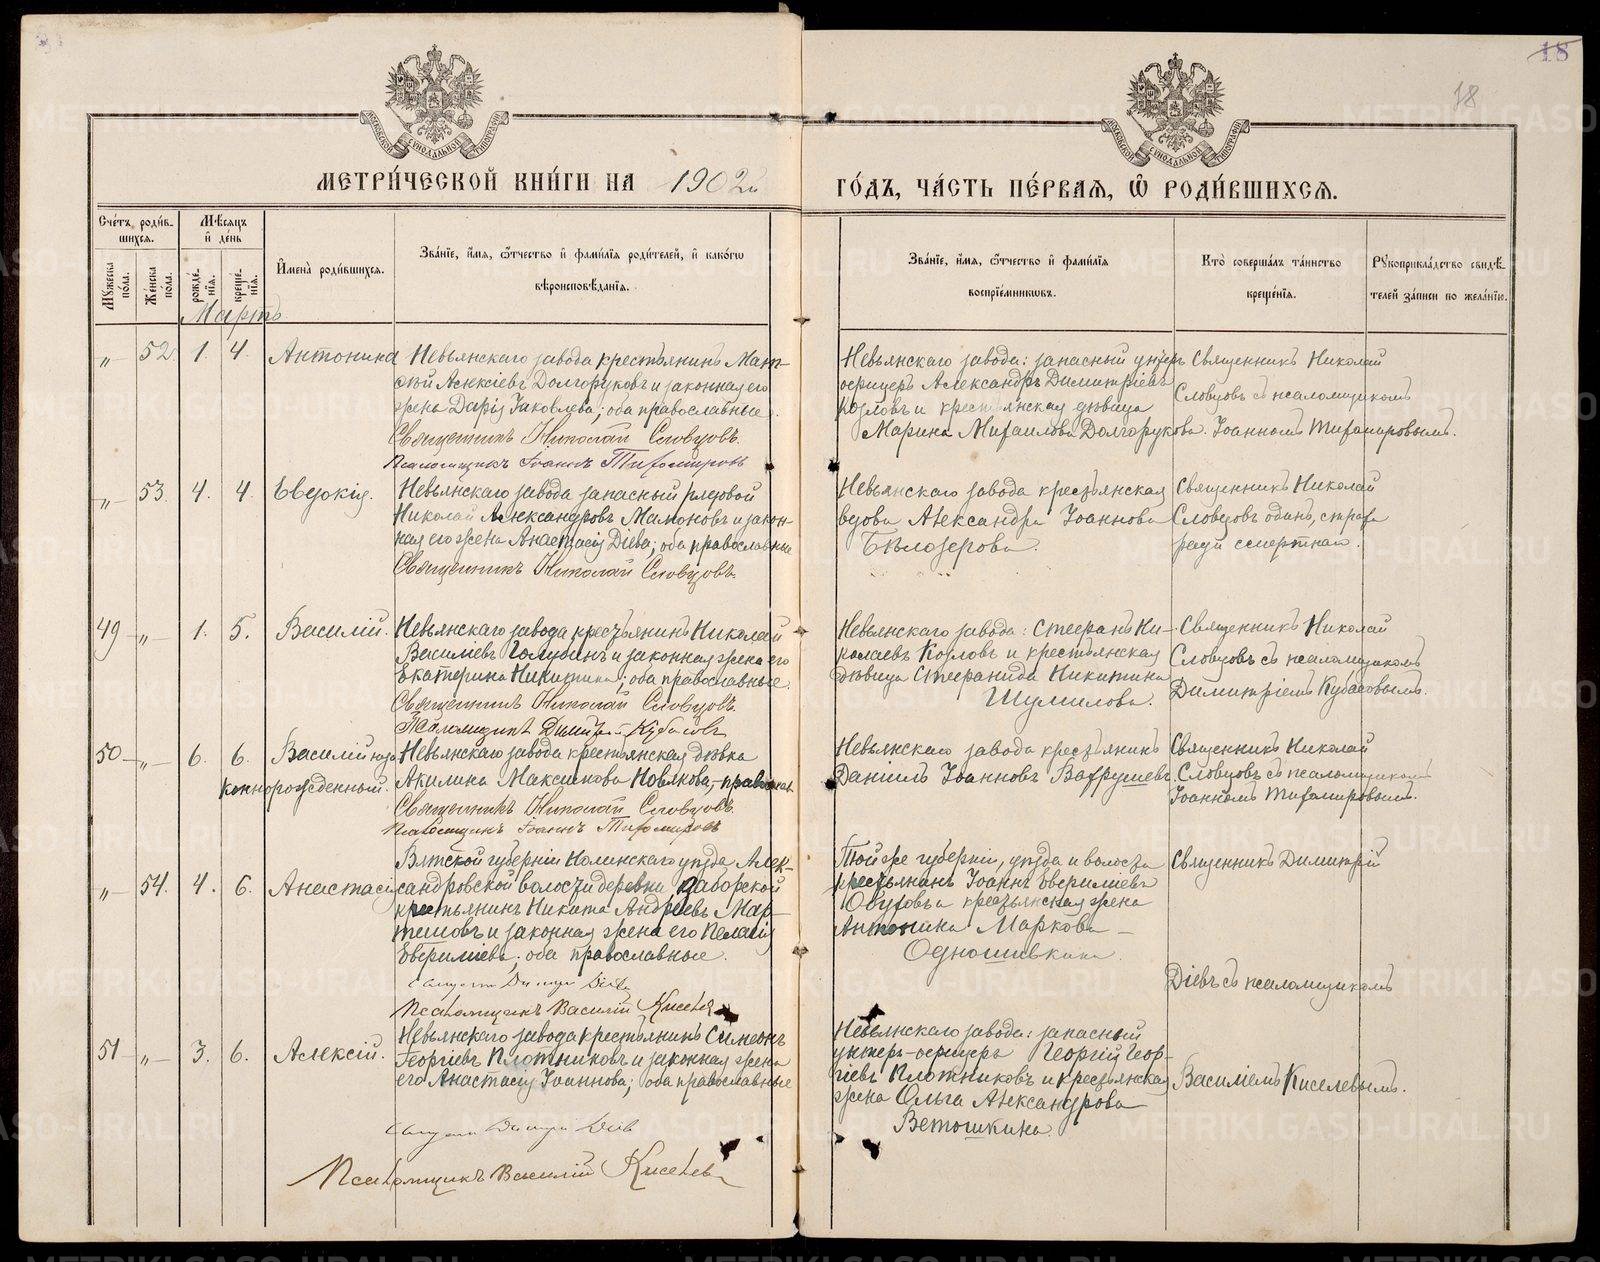 18
18
МЕТРИ́ЧЕСКОЙ КНИ́ГИ НА 1902й
ГО́ДЪ, ЧА́СТЬ ПЕ́РВАЯ, Ѿ РОДИ́ВШИХСЯ.
Сче́тъ роди́в-
шихся.
Мѣ́сяцъ
и де́нь
Мꙋжеска по́ла.
Же́нска по́ла.
рожде́-
нїя.
креще́-
нїя.
И҆мена̀ роди́вшихся.
Зва́нїе, и҆́мя, ѻ҆́тчество и҆ фами́лїя роди́телей, и҆ како́гѡ
вѣроисповѣ́данїя.
Зва́нїе, и҆́мя, ѻ҆́тчество и҆ фами́лїя
воспрїе́мникѡвъ.
Кто̀ соверша́лъ та́инство
креще́нїя.
Рꙋкоприкла́дство свидѣ́-
телей за́писи по жела́нїю.
Мартъ
„ 52 1. 4. Антонина
Невьянскаго завода крестьянинъ Мат-
ѳій Алексіевъ Долгоруковъ и законная его
жена Дарія Іаковлева; оба православные.
Священникъ Николай Словцовъ.
Псаломщикъ Іоаннъ Тихомировъ
Невьянскаго завода: запасный унтеръ
офицеръ Александръ Димитріевъ
Козловъ и крестьянская дѣвица
Марина Михаилова Долгорукова.
Священникъ Николай
Словцовъ съ псаломщикомъ
Іоанномъ Тихомировымъ.
„ 53. 4. 4. Евдокія.
Невьянскаго завода запасный рядовой
Николай Александровъ Мамоновъ и закон-
ная его жена Анастасія Діева; оба православные
Священникъ Николай Словцовъ.
Невьянскаго завода крестьянская
вдова Александра Іоаннова
Бѣлозерова.
Священникъ Николай
Словцовъ одинъ, страха
ради смертнаго.
49 „ 1. 5. Василій.
Невьянскаго завода крестьянинъ Николай
Василіевъ Голубинъ и законная жена его
Екатерина Никитина; оба православные.
Священникъ Николай Словцовъ.
Псаломщикъ Димитрій Кубасовъ
Невьянскаго завода: Стефанъ Ни-
колаевъ Козловъ и крестьянская
дѣвица Стефанида Никитина
Шумилова.
Священникъ Николай
Словцовъ съ псаломщикомъ
Димитріемъ Кубасовымъ.
50 „ 6. 6. Василій неза-
коннорожденный.
Невьянскаго завода крестьянская дѣвка
Акилина Максимова Новякова, православ.
Священникъ Николай Словцовъ.
Псаломщикъ Іоаннъ Тихомировъ
Невьянскаго завода крестьянинъ
Даніилъ Іоанновъ Вахрушевъ
Священникъ Николай
Словцовъ съ псаломщикомъ
Іоанномъ Тихомировымъ.
„ 54. 4. 6. Анастасія
Вятской губерніи Нолинскаго уѣзда Алек-
сандровской волости деревни Заборской
крестьянинъ Никита Андреевъ Мар-
тешовъ и законная жена его Пелагія
Евфиміева; оба православные.
Димитр Діевъ
Псаломщикъ Василій Киселевъ
Той же губерніи, уѣзда и волости
крестьянинъ Іоаннъ
и крестьянская жена
Антонина Маркова
Одношивкина.
Священникъ Димитрій
Діевъ съ псаломщикомъ
51 „ 3. 6. Алексій.
Невьянскаго завода крестьянинъ Симеонъ
Георгіевъ Плотниковъ и законная жена
его Анастасія Іоаннова; оба православные
Димитр Діевъ
Псаломщикъ Василій Киселевъ
Невьянскаго завода: запасный
унтеръ-офицеръ Георгій Геор-
гіевъ Плотниковъ и крестьянская
жена Ольга Александрова
Ветошкина.
Василіемъ Киселевымъ.